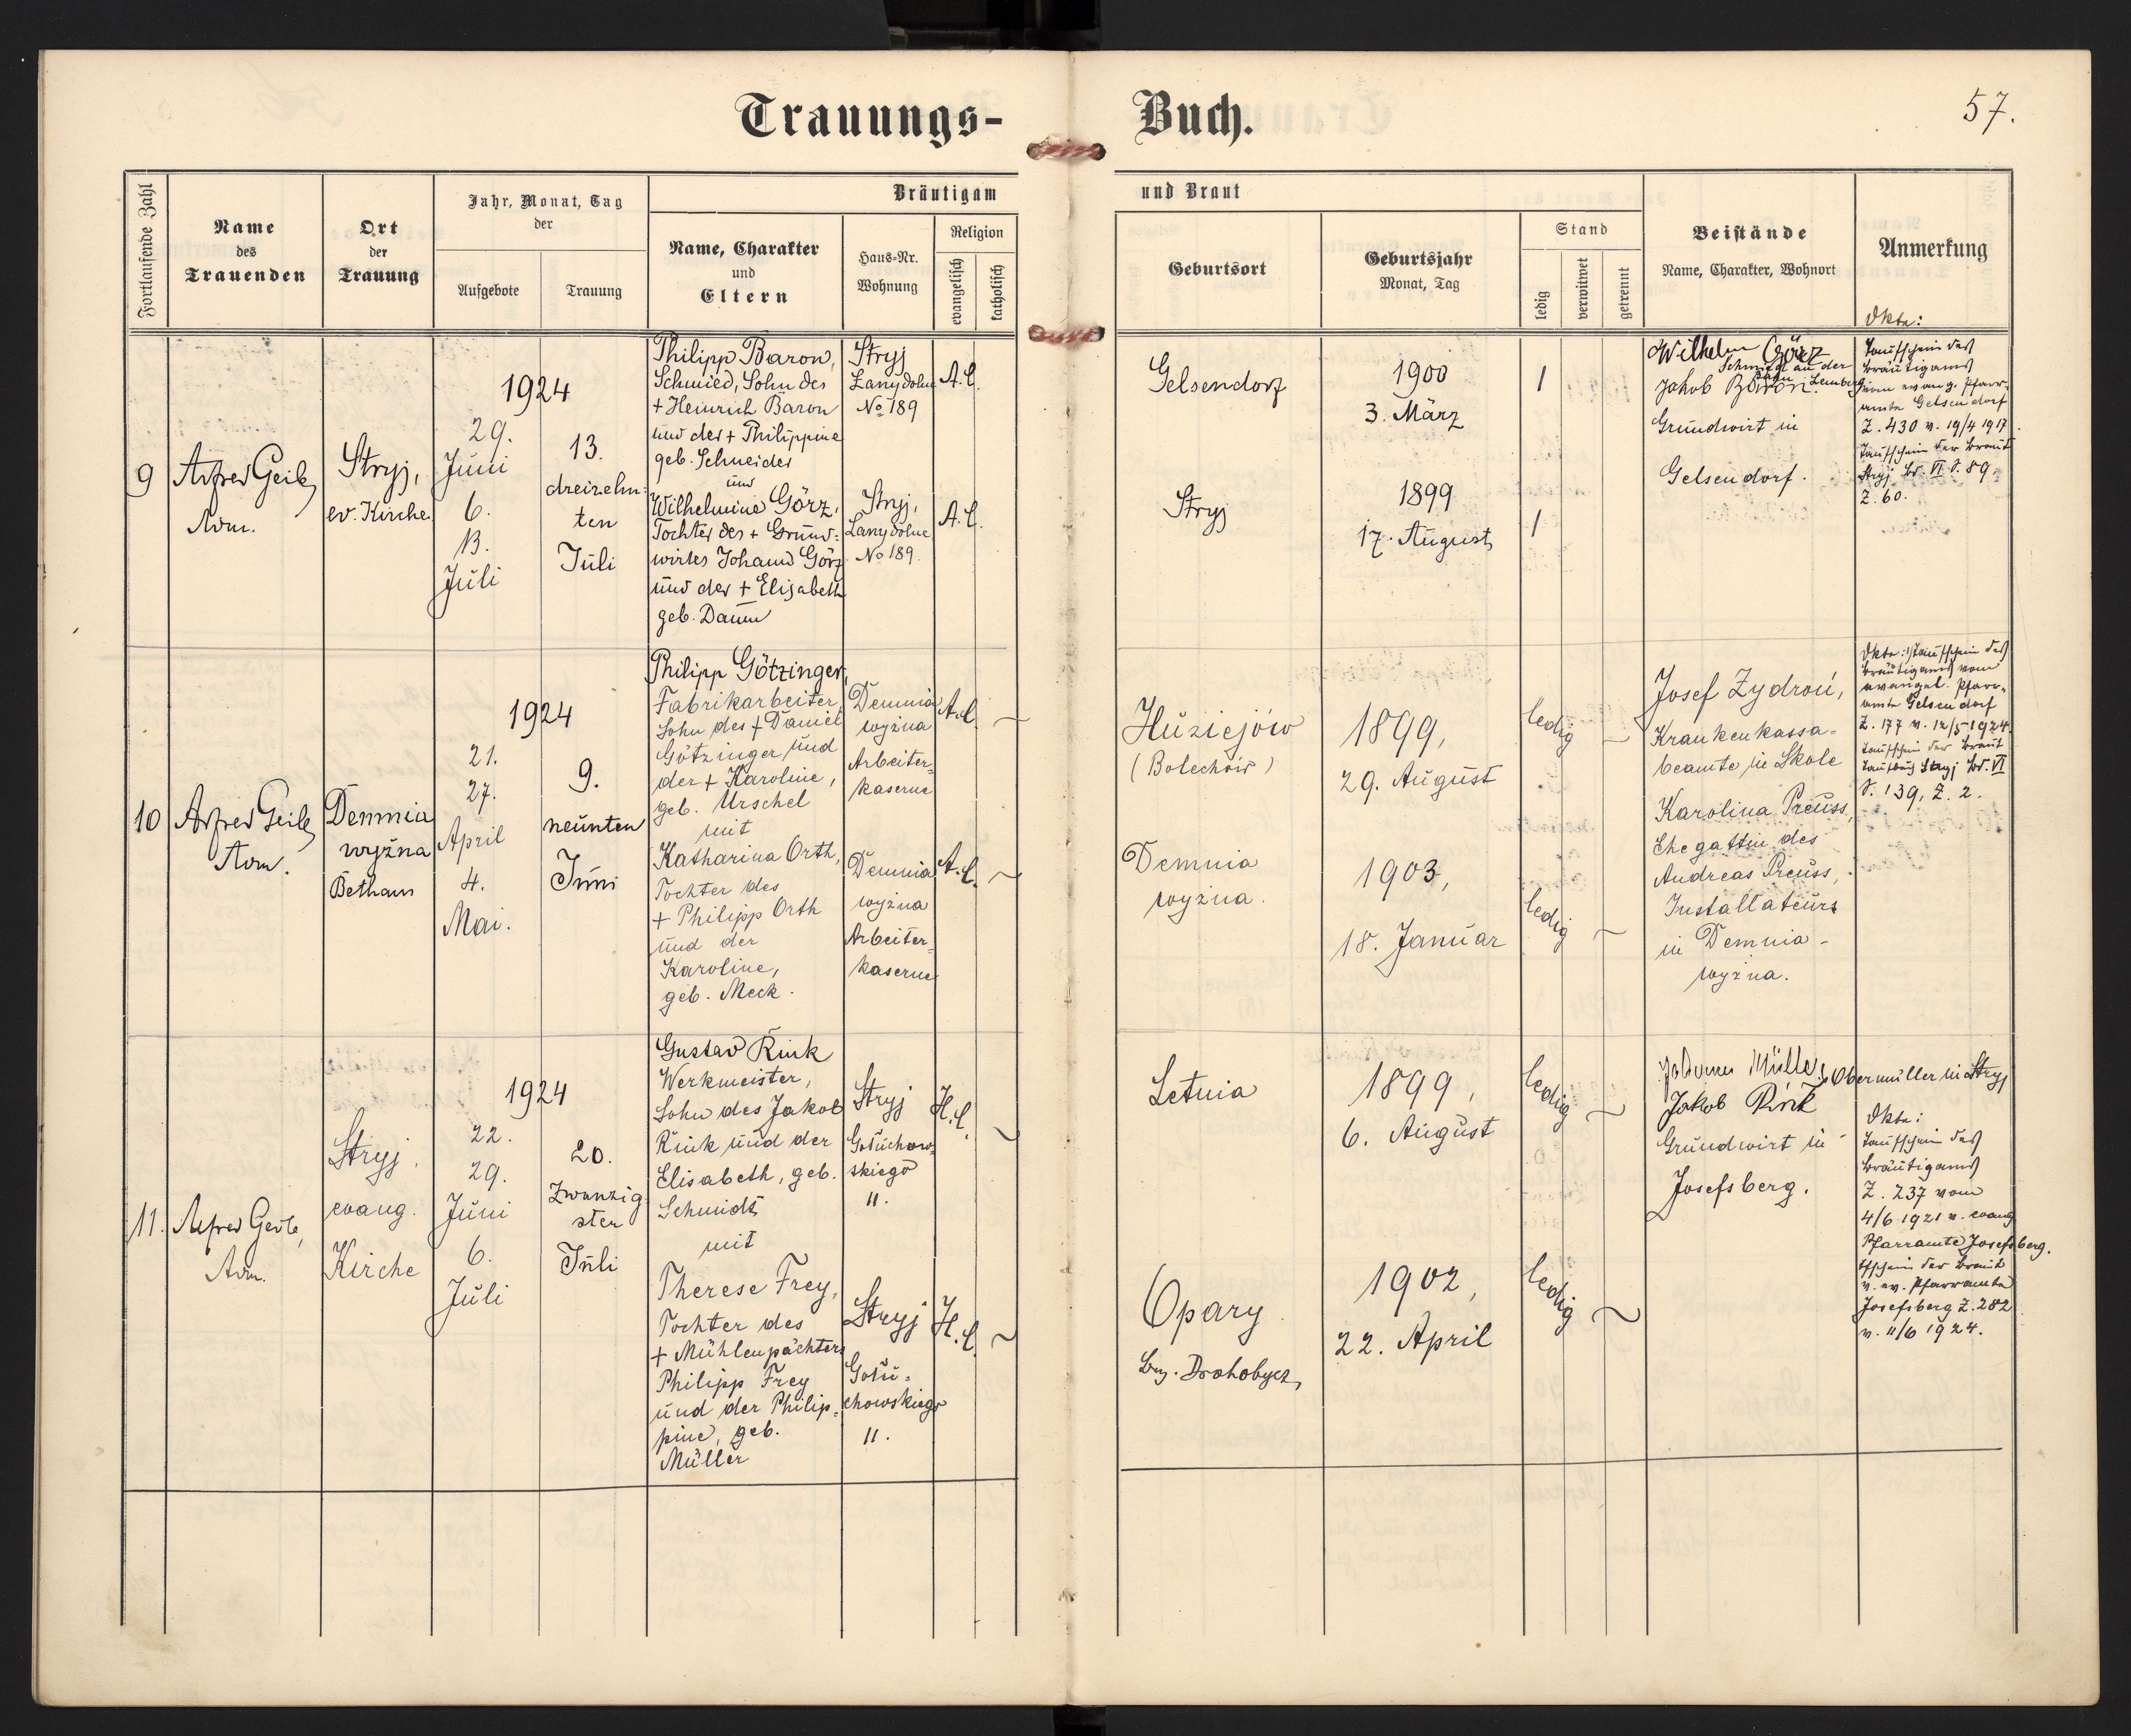 Trauungs-Buch.
57.
Fortlaufende Zahl
Name
des
Trauenden
Ort
der
Trauung
Jahr, Monat, Tag
der
Aufgebote
Trauung
Bräutigam und Braut
Name, Charakter
und
Eltern
Haus-Nr.
Wohnung
Religion
evangelisch
katholisch
Geburtsort
Geburtsjahr
Monat, Tag
Stand
ledig
verwitwet
getrennt
Beistände
Name, Charakter, Wohnort
Anmerkung
9
Alfred Geib,
Adm.
Stryj,
ev. Kirche
1924
29.
Juni
6.
13.
Juli
13.
dreizehn-
ten
Juli
Philipp Baron,
Schmied, Sohn des
+ Heinrich Baron
und der + Philippine
geb. Schneider
und
Wilhelmine Görz,
Tochter des + Grund-
wirtes Johann Görz
und der + Elisabeth
geb. Daum
Stryj
Łany dolne
No 189
Stryj,
Łany dolne
No 189.
A.C.
A.C.
Gelsendorf
Stryj
1900
3. März
1899
17. August
1
1
Wilhelm Görz
Schmied an der
Bahn Lemberg
Jakob Baron
Grundwirt in
Gelsendorf.
Akte:
Taufschein des
Bräutigams
vom evang. Pfarr-
amte Gelsendorf
Z. 430 v. 19/4 1917.
Taufschein der Braut
Stryj Bd. VI S. 89,
Z. 60.
10
Alfred Geib,
Adm.
Demnia
wyżna
Bethaus
1924
21.
27.
April
4.
Mai.
9.
neunten
Juni
Philipp Götzinger,
Fabrikarbeiter,
Sohn des + Daniel
Götzinger und
der + Karoline,
geb. Urschel
mit
Katharina Orth,
Tochter des
+ Philipp Orth
und der
Karoline,
geb. Meck.
Demnia
wyżna
Arbeiter-
kaserne
Demnia
wyżna
Arbeiter-
kaserne
A.C.
A.C.
Huziejów
(Bolechów)
Demnia
wyżna.
1899,
29. August
1903,
18. Januar
ledig
ledig
Josef Zydroń,
Krankenkassa-
beamte in Skole
Karolina Preuss,
Ehegattin des
Andreas Preuss,
Installateurs
in Demnia-
wyżna.
Akte: Taufschein des
Bräutigams vom
evangel. Pfarr-
amte Gelsendorf
Z. 177 v. 12/5 1924.
Taufschein der Braut
Taufbuch Stryj Bd. VI
S. 139, Z. 2.
11.
Alfred Geib,
Adm.
Stryj,
evang.
Kirche
1924
22.
29.
Juni
6.
Juli
20.
Zwanzig
sten
Juli
Gustav Rink
Werkmeister,
Sohn des Jakob
Rink und der
Elisabeth, geb.
Schmidt
mit
Therese Frey,
Tochter des
+ Mühlenpächters
Philipp Frey
und der Philip-
pine, geb.
Müller
Stryj
Gołuchow-
skiego
11.
Stryj
Gołu-
chowskiego
11.
H.C.
H.C.
Letnia
Opary
Bez. Drohobycz,
1899,
6. August
1902,
22. April
ledig
ledig
Müller, Obermüller in Stryj
Jakob Rink
Grundwirt in
Josefsberg.
Akte:
Taufschein des
Bräutigams
Z. 237 vom
4/6 1921 v. evang
Pfarramte Josefsberg.
Tfschein der Braut
v. ev. Pfarramte
Josefsberg Z. 282
v. 11/6 1924.